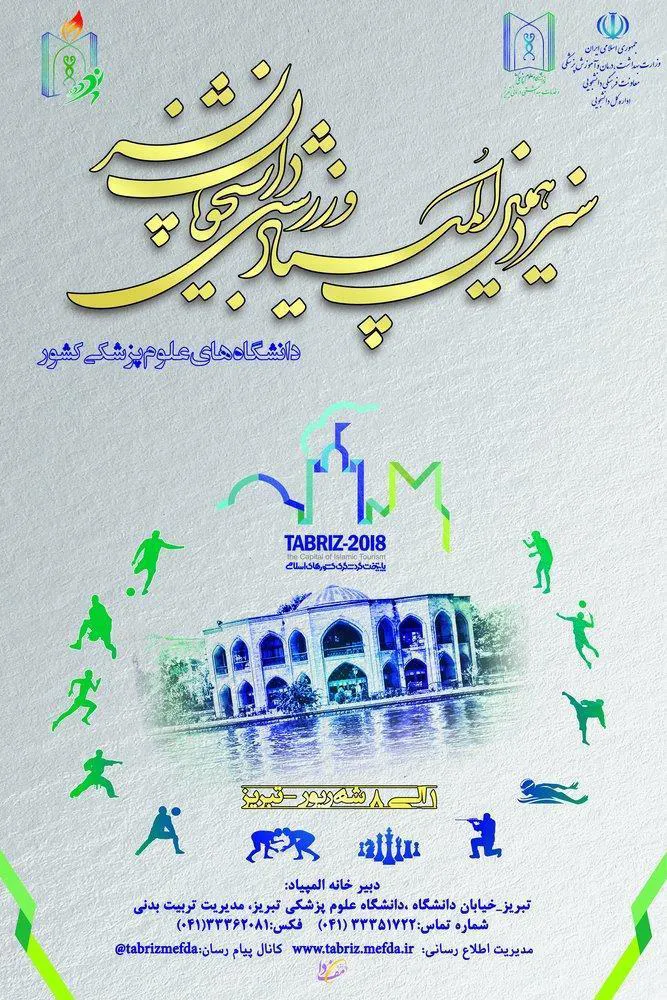 جمهوری اسلامی ایران
وزارت بهداشت، درمان و آموزش پزشکی
معاونت فرهنگی دانشجویی
اداره کل دانشجویی
سیزدهمین المپیاد ورزشی دانشجویان پسر
دانشگاه‌های علوم پزشکی کشور
TABRIZ-2018
the Capital of Islamic Tourism
پایتخت گردشگری کشورهای اسلامی
۱ الی ۸ شهریور - تبریز
دبیر خانه المپیاد:
تبریز_خیابان دانشگاه ،دانشگاه علوم پزشکی تبریز، مدیریت تربیت بدنی
شماره تماس:۳۳۳۵۱۷۲۲ (۰۴۱) فکس:۳۳۳۶۲۰۸۱(۰۴۱)
مدیریت اطلاع رسانی: www.tabriz.mefda.ir کانال پیام رسان:@tabrizmefda